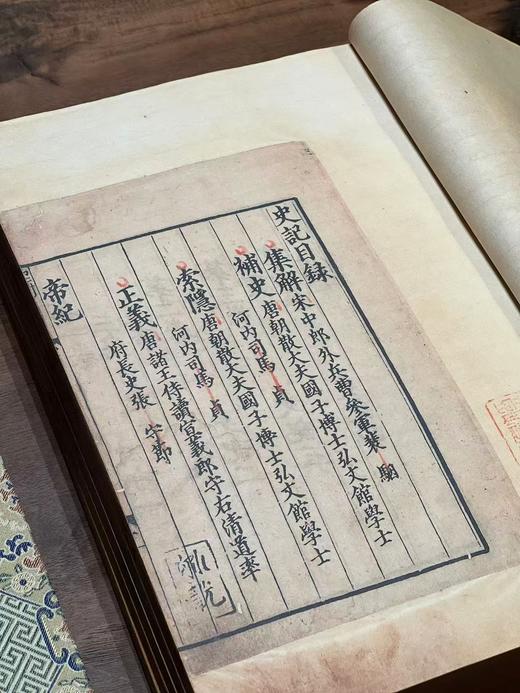 史記目錄
集解宋中郎外兵曹參軍裴 駰
補史唐朝散大夫國子博士弘文館學士
河內司馬 貞
索隱唐朝散大夫國子博士弘文館學士
河內司馬 貞
正義唐諸王侍讀宣義郎守右清道率
府長史張 守節
帝紀